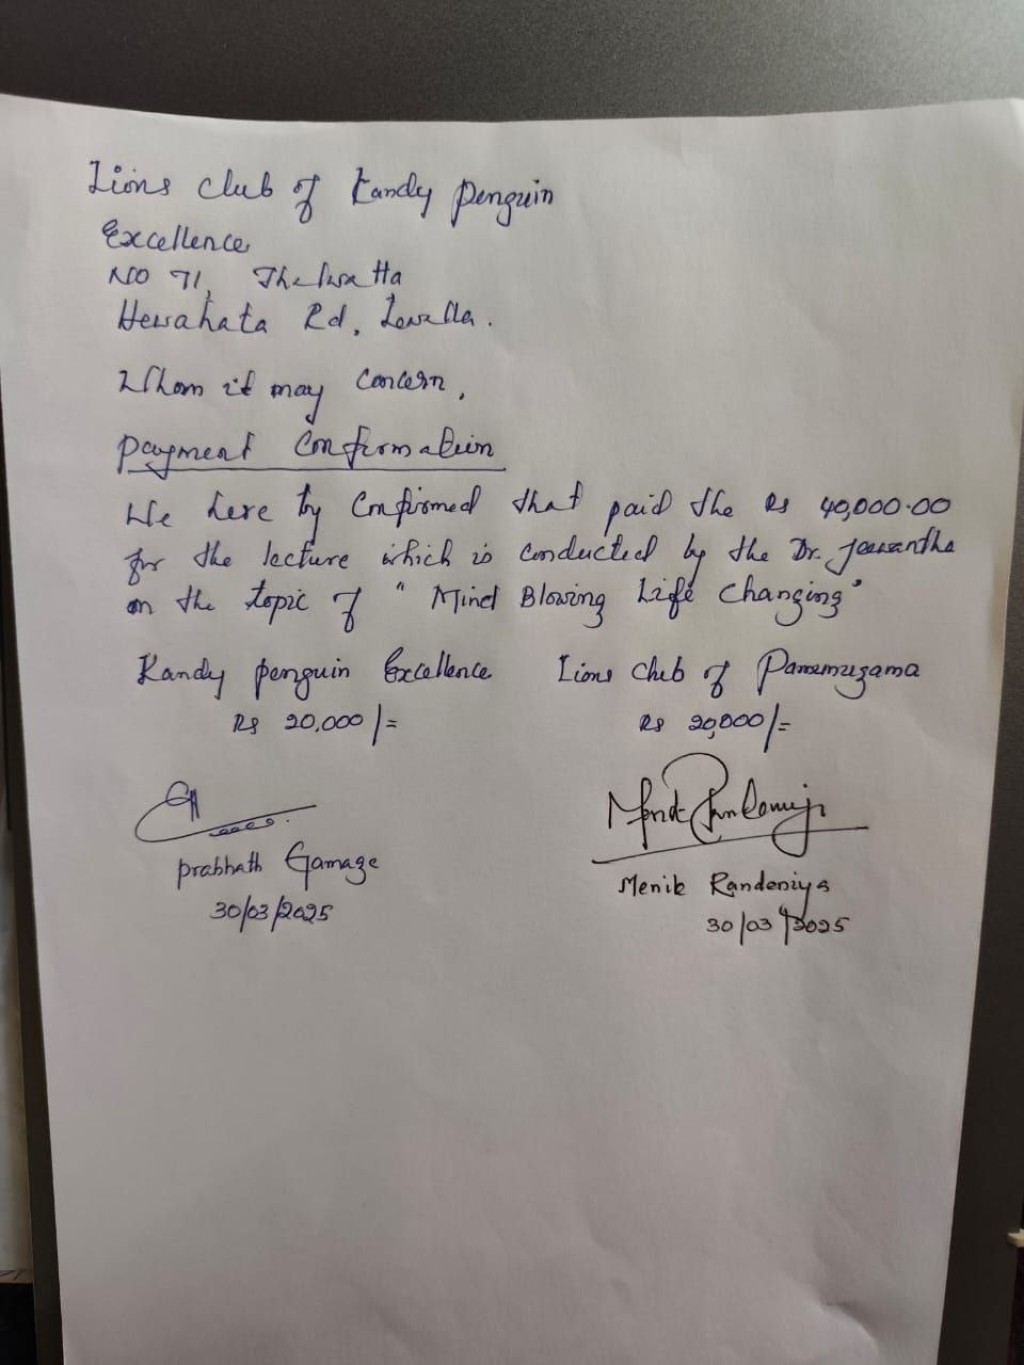 Lions club of Kandy Penguin
Excellence
NO 71, Thelwatta
Hewahata Rd, Lewella.
Whom it may Concern,
Payment Confirmation
We here by Confirmed that paid the Rs 40,000.00
for the lecture which is conducted by the Dr.
on the topic of " Mind Blowing Life Changing"
Kandy penguin Excellence Lions Club of
Rs 20,000/= Rs 20,000/=
Prabhath Gamage
30/03/2025
Menik Randeniya
30/03/2025